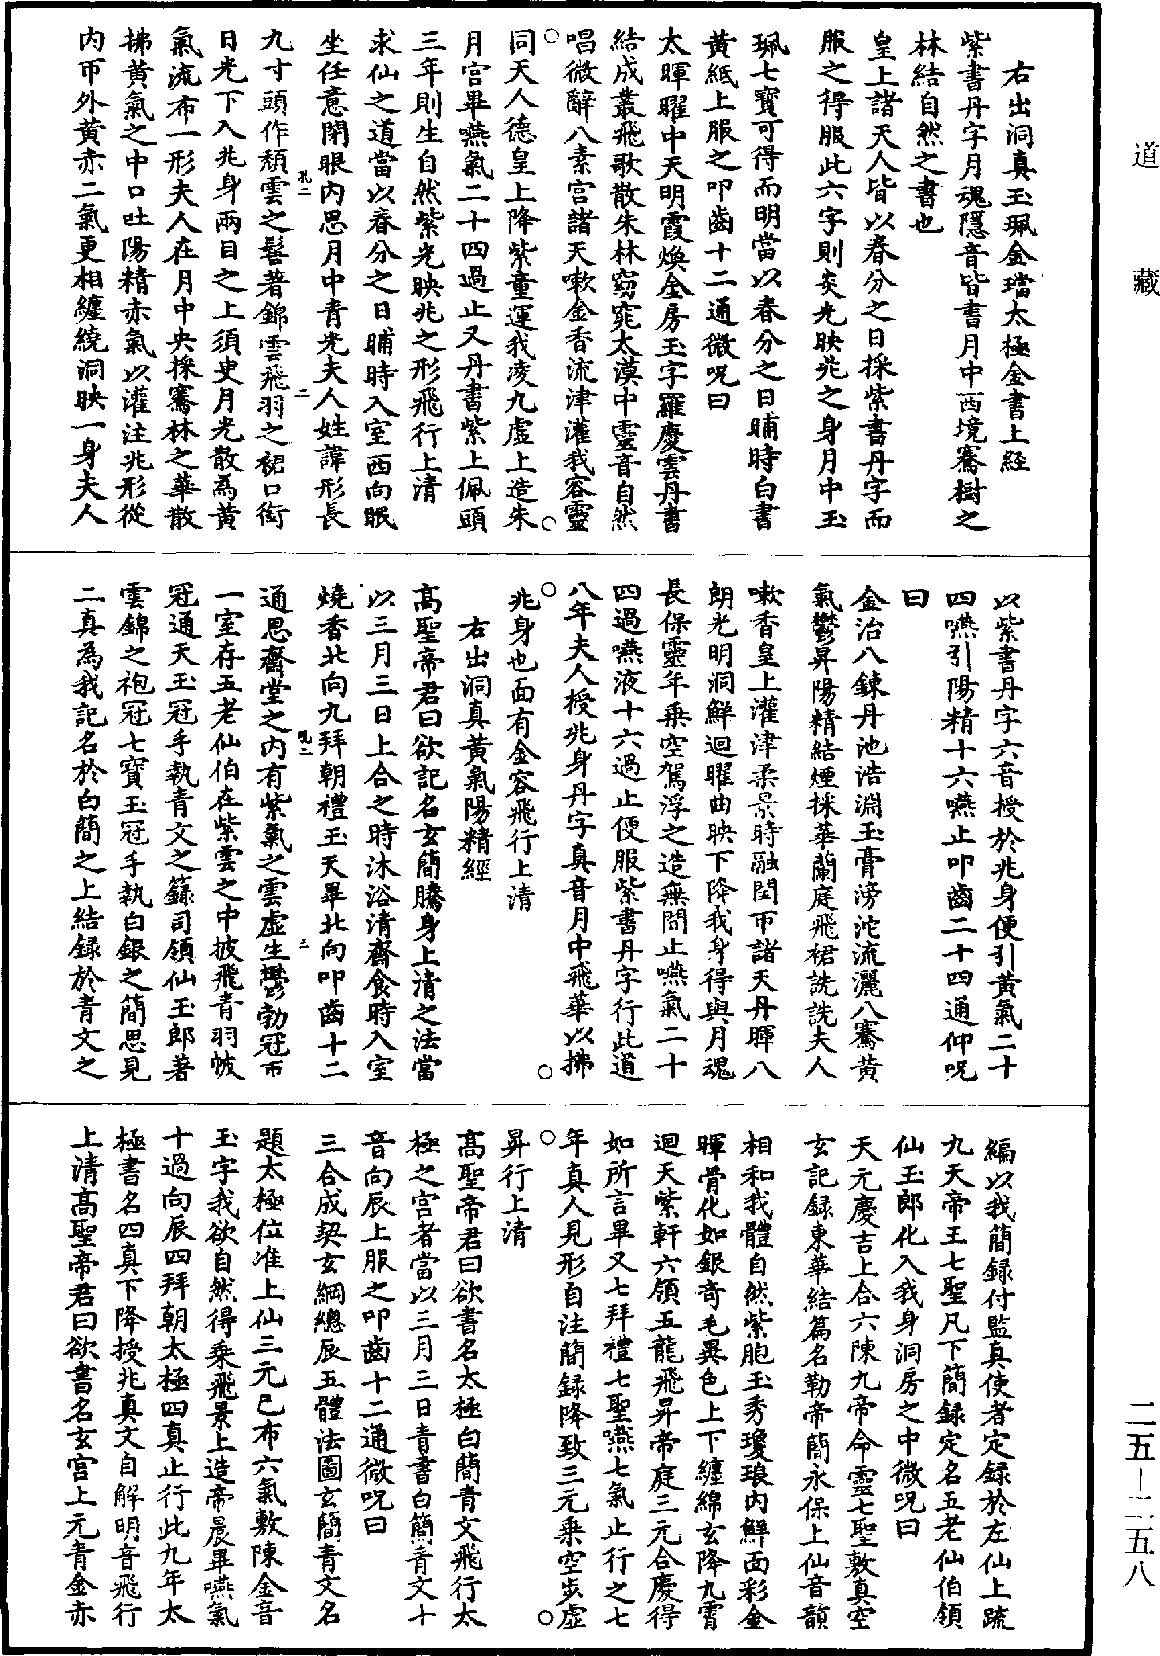 道藏
右出洞真玉珮金璫太極金書上經
紫書丹字月魂隱音皆書月中西境騫樹之
林結自然之書也
皇上諸天人皆以春分之日採紫書丹字而
服之得服此六字則炎光映兆之身月中玉
珮七寶可得而明當以春分之日晡時白書
黃紙上服之叩齒十二通微呪曰
太暉曜中天明霞煥金房玉字羅慶雲丹書
結成叢飛歌散朱林窈窕太漠中靈音自然
唱微辭八素宮諸天嗽金香流津灌我容靈
同天人德皇上降紫童運我淩九虛上造朱
月宮畢嚥氣二十四過止又丹書紫上佩頭
三年則生自然紫光映兆之形飛行上清
求仙之道當以春分之日晡時入室西向眠
坐任意閉眼內思月中青光夫人姓諱形長
九寸頭作頹雲之髻著錦雲飛羽之裙口銜
日光下入兆身兩目之上須臾月光散為黃
氣流布一形夫人在月中央採騫林之華散
拂黃氣之中口吐陽精赤氣以灌注兆形從
內帀外黃赤二氣更相纏繞洞映一身夫人
以紫書丹字六音授於兆身便引黃氣二十
四嚥引陽精十六嚥止叩齒二十四通仰呪
曰
金治八鍊丹池浩淵玉膏滂沱流灑八騫黃
氣鬱昇陽精結煙採華蘭庭飛裙詵詵夫人
嗽香皇上灌津柔景時融閏帀諸天丹暉八
朗光明洞鮮迴曜曲映下降我身得與月魂
長保靈年乘空駕浮之造無間止嚥氣二十
四過嚥液十六過止便服紫書丹字行此道
八年夫人授兆身丹字真音月中飛華以拂
兆身也面有金容飛行上清
右出洞真黃氣陽精經
高聖帝君曰欲記名玄簡騰身上清之法當
以三月三日上合之時沐浴清齋食時入室
燒香北向九拜朝禮玉天畢北向叩齒十二
通思齋堂之內有紫氣之雲虛生鬱勃冠帀
一室存五老仙伯在紫雲之中披飛青羽帔
冠通天玉冠手執青文之籙司領仙玉郎著
雲錦之袍冠七寶玉冠手執白銀之簡思見
二真為我記名於白簡之上結錄於青文之
編以我簡錄付監真使者定錄於左仙上疏
九天帝王七聖凡下簡錄定名五老仙伯領
仙玉郎化入我身洞房之中微呪曰
天元慶吉上合六陳九帝命靈七聖敷真空
玄記錄東華結篇名勒帝簡永保上仙音韻
相和我體自然紫胞玉秀瓊琅內鮮面彩金
暉骨化如銀奇毛異色上下纏綿玄降九霄
迴天紫軒六領五龍飛昇帝庭三元合慶得
如所言畢又七拜禮七聖嚥七氣止行之七
年真人見形自注簡錄降致三元乘空步虛
昇行上清
高聖帝君曰欲書名太極白簡青文飛行太
極之宮者當以三月三日青書白簡青文十
音向辰上服之叩齒十二通微呪曰
三合成契玄綱總辰五體法圖玄簡青文名
題太極位准上仙三元已布六氣敷陳金音
玉字我欲自然得乘飛景上造帝晨畢嚥氣
十過向辰四拜朝太極四真止行此九年太
極書名四真下降授兆真文自解明音飛行
上清高聖帝君曰欲書名玄宮上元青金赤
二五—二五八